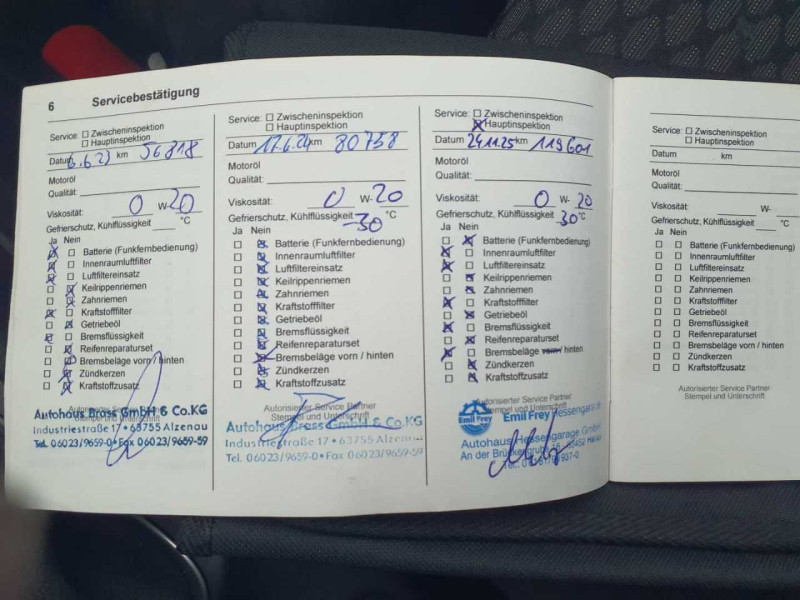 6 Servicebestätigung
Service: ☐ Zwischeninspektion
☐ Hauptinspektion
Datum 6.6.23 km 56818
Motoröl
Qualität:
Viskosität: 0 W-20
Gefrierschutz, Kühlflüssigkeit °C
Ja Nein
Batterie (Funkfernbedienung)
Innenraumluftfilter
Luftfiltereinsatz
Keilrippenriemen
Zahnriemen
Kraftstofffilter
Getriebeöl
Bremsflüssigkeit
Reifenreparaturset
Bremsbeläge vorn / hinten
Zündkerzen
Kraftstoffzusatz
Autorisierter Service Partner
Stempel und Unterschrift
Autohaus Brass GmbH & Co.KG
Industriestraße 17 • 63755 Alzenau
Tel. 06023/9659-0 • Fax 06023/9659-59
Service: ☐ Zwischeninspektion
☐ Hauptinspektion
Datum 17.6.24 km 80758
Motoröl
Qualität:
Viskosität: 0 W-20
Gefrierschutz, Kühlflüssigkeit -30 °C
Ja Nein
Batterie (Funkfernbedienung)
Innenraumluftfilter
Luftfiltereinsatz
Keilrippenriemen
Zahnriemen
Kraftstofffilter
Getriebeöl
Bremsflüssigkeit
Reifenreparaturset
Bremsbeläge vorn / hinten
Zündkerzen
Kraftstoffzusatz
Autorisierter Service Partner
Stempel und Unterschrift
Autohaus Brass GmbH & Co.KG
Industriestraße 17 • 63755 Alzenau
Tel. 06023/9659-0 • Fax 06023/9659-59
Service: ☐ Zwischeninspektion
☒ Hauptinspektion
Datum 24.11.25 km 119601
Motoröl
Qualität:
Viskosität: 0 W- 20
Gefrierschutz, Kühlflüssigkeit 30 °C
Ja Nein
Batterie (Funkfernbedienung)
Innenraumluftfilter
Luftfiltereinsatz
Keilrippenriemen
Zahnriemen
Kraftstofffilter
Getriebeöl
Bremsflüssigkeit
Reifenreparaturset
Bremsbeläge vorn / hinten
Zündkerzen
Kraftstoffzusatz
Autorisierter Service Partner
Stempel und Unterschrift
Emil Frey Emil Frey Hessengarage
Autohaus Hessengarage GmbH
An der
Service: ☐ Zwischeninspektion
☐ Hauptinspektion
Datum km
Motoröl
Qualität:
Viskosität: W-
Gefrierschutz, Kühlflüssigkeit °C
Ja Nein
Batterie (Funkfernbedienung)
Innenraumluftfilter
Luftfiltereinsatz
Keilrippenriemen
Zahnriemen
Kraftstofffilter
Getriebeöl
Bremsflüssigkeit
Reifenreparaturset
Bremsbeläge vorn / hinten
Zündkerzen
Kraftstoffzusatz
Autorisierter Service Partner
Stempel und Unterschrift